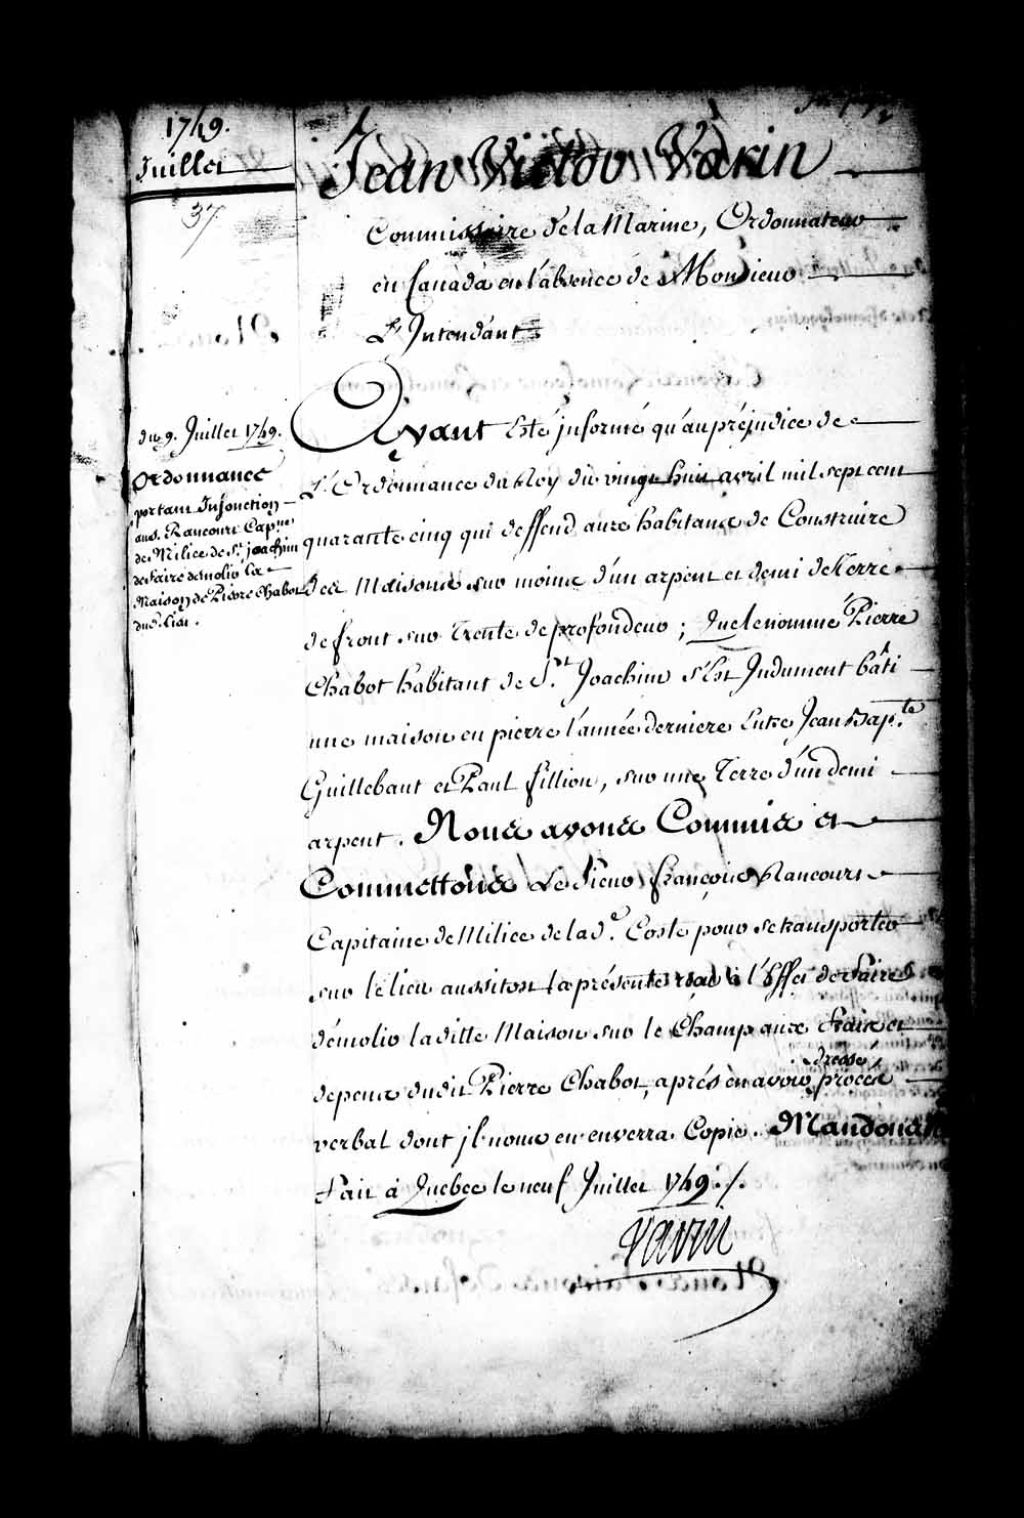 1749.
Juillet
37
Jean Victor Varin
Commissaire de la Marine, Ordonnateur
en Canada en l'absence de Monsieur
L'Intendant
du 9. Juillet 1749.
Ordonnance
portant Injonction
au S. Rancourt Cap.ne
de Milice de S.t joachim
de faire demolir la
Maison de Pierre Chabot
dud. lieu.
Ayant Esté jnformé qu'au préjudice de
L'Ordonnance du Roy du vingt huit avril mil sept cent
quarante cinq qui deffend aux habitans de Construire
des Maisons sur moins d'un arpent et demi de Terre
de front sur Trente de profondeur ; Que le nommé Pierre
Chabot habitant de S.nt Joachim s'Est Induement bâti
une maison en pierre l'année derniere Entre Jean Bap.te
Guillebaut et Paul fillion, sur une Terre d'un demi
arpent. Nous avons Commis et
Commettons Le Sieur françois Rancourt
Capitaine de Milice de lad.e Coste pour se transporter
sur le lieu aussitost la présente à l'Effet de faire
démolir la ditte Maison sur le Champ aux fraix et
depens dudit Pierre Chabot, aprés en avoir dressé procés
verbal dont jl nous en enverra Copie. Mandons
Fait à Québec le neuf Juillet 1749 ./.
Varin